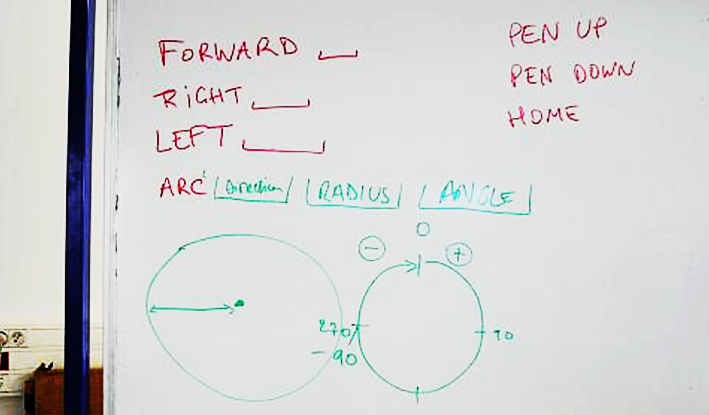 FORWARD
RIGHT
LEFT
ARC Direction RADIUS ANGLE
PEN UP
PEN DOWN
HOME
0
- +
270/
-90
90